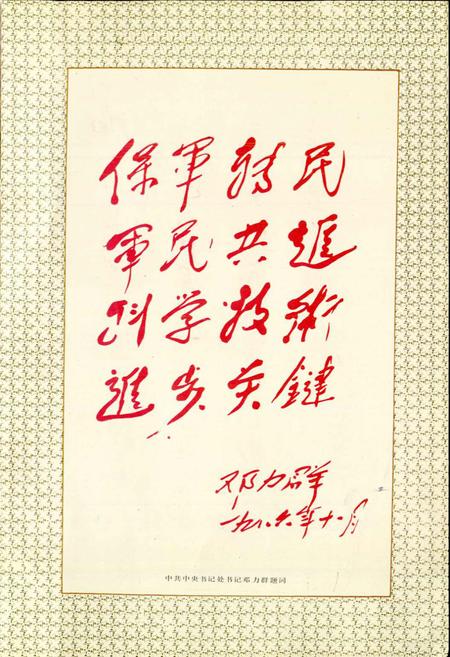 保軍轉民
軍民共進
科学技術
進步关鍵
邓力群
一九八六年十一月
中共中央书记处书记邓力群题词